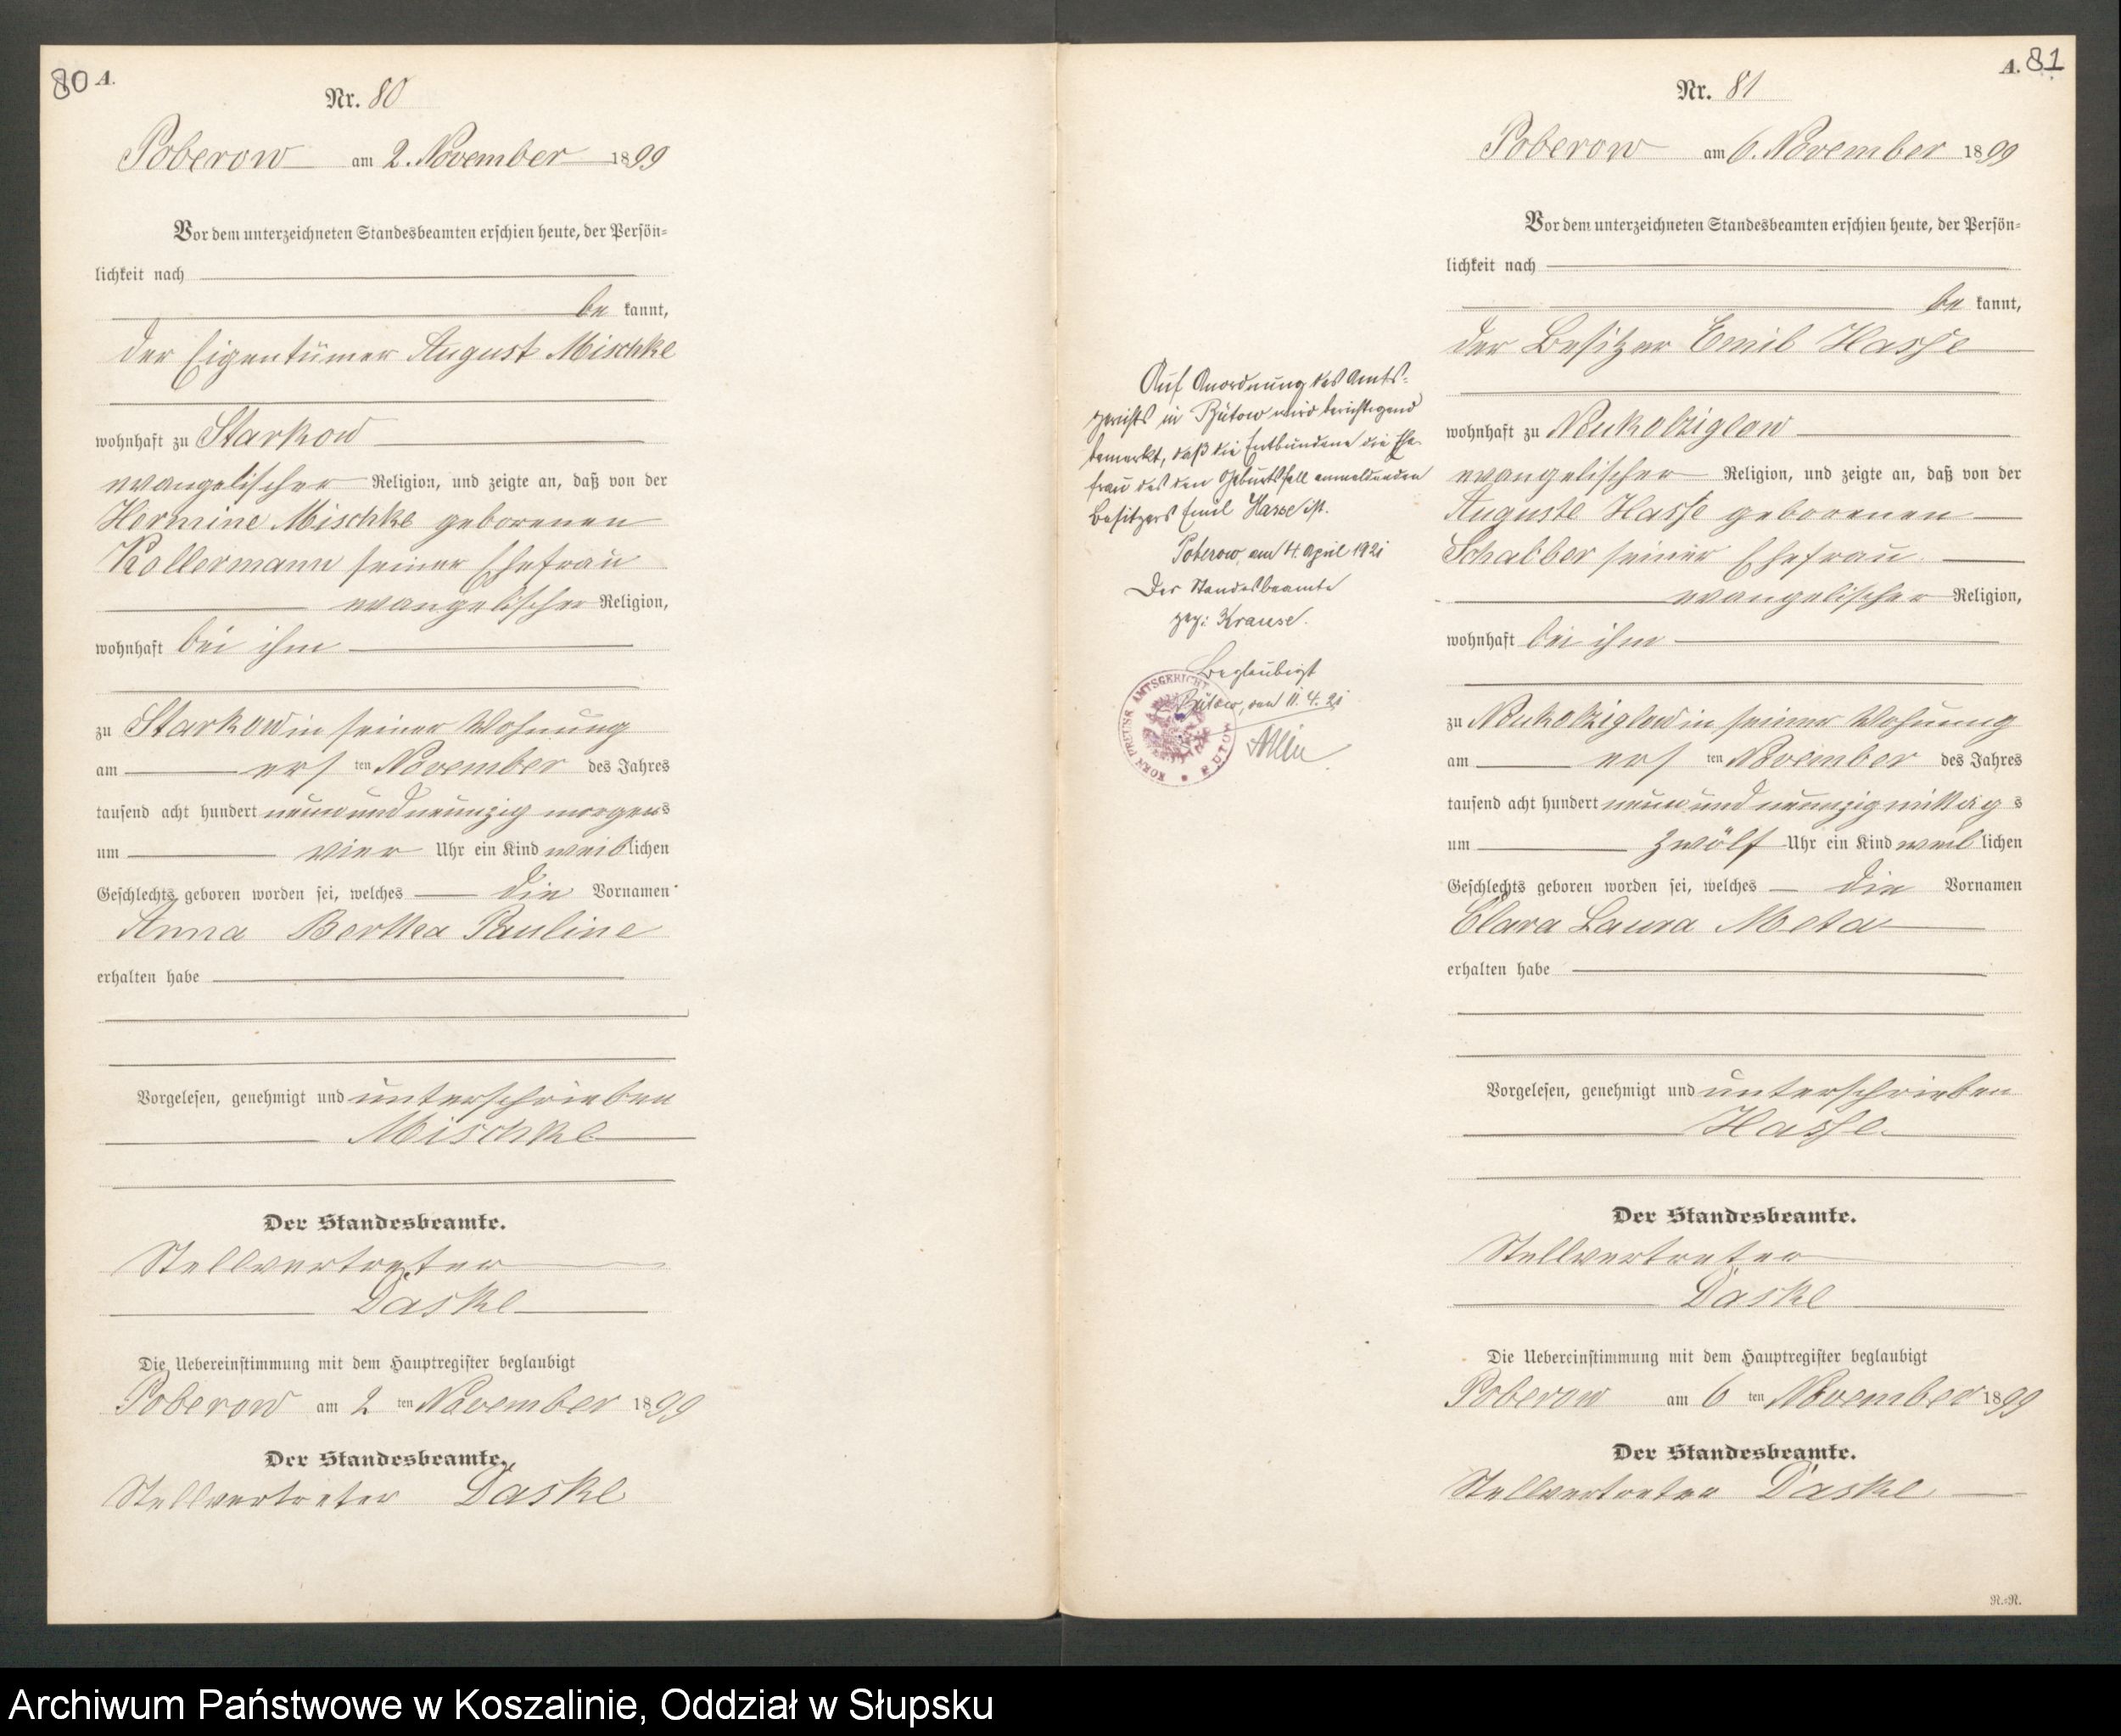 80 A.
Nr. 80
Poberow am 2. November 1899
Vor dem unterzeichneten Standesbeamten erschien heute, der Persön-
lichkeit nach
be kannt,
der Eigentümer August Mischke
wohnhaft zu Starkow
evangelischer Religion, und zeigte an, daß von der
Hermine Mischke geborenen
Kollermann seiner Ehefrau
evangelischer Religion,
wohnhaft bei ihm
zu Starkow in seiner Wohnung
am ers ten November des Jahres
tausend acht hundert neun und neunzig morgens
um vier Uhr ein Kind weiblichen
Geschlechts geboren worden sei, welches die Vornamen
Anna Bertha Pauline
erhalten habe
Vorgelesen, genehmigt und unterschrieben
Mischke
Der Standesbeamte.
Stellvertreter
Daske
Die Uebereinstimmung mit dem Hauptregister beglaubigt
Poberow am 2 ten November 1899
Der Standesbeamte.
Stellvertreter Daske
Auf Anordnung des Amts-
gerichts in Bütow wird berichtigend
bemerkt, daß die Entbundene die Ehe-
frau des den Geburtsfall anmeldenden
Besitzers Emil Hasse ist.
Poberow, am 4. April 1921
Der Standesbeamte
gez: Krause.
Beglaubigt
Bütow, den 11.4.21
KÖN. PREUSS. AMTSGERICHT
BÜTOW
A. 81
Nr. 81
Poberow am 6. November 1899
Vor dem unterzeichneten Standesbeamten erschien heute, der Persön-
lichkeit nach
be kannt,
der Besitzer Emil Hasse
wohnhaft zu Neukolziglow
evangelischer Religion, und zeigte an, daß von der
Auguste Hasse geborenen
Schabber seiner Ehefrau
evangelischer Religion,
wohnhaft bei ihm
zu Neukolziglow in seiner Wohnung
am ers ten November des Jahres
tausend acht hundert neun und neunzig mittags
um zwölf Uhr ein Kind weiblichen
Geschlechts geboren worden sei, welches die Vornamen
Clara Laura Meta
erhalten habe
Vorgelesen, genehmigt und unterschrieben
Hasse
Der Standesbeamte.
Stellvertreter
Daske
Die Uebereinstimmung mit dem Hauptregister beglaubigt
Poberow am 6 ten November 1899
Der Standesbeamte.
Stellvertreter Daske
R.=R.
Archiwum Państwowe w Koszalinie, Oddział w Słupsku